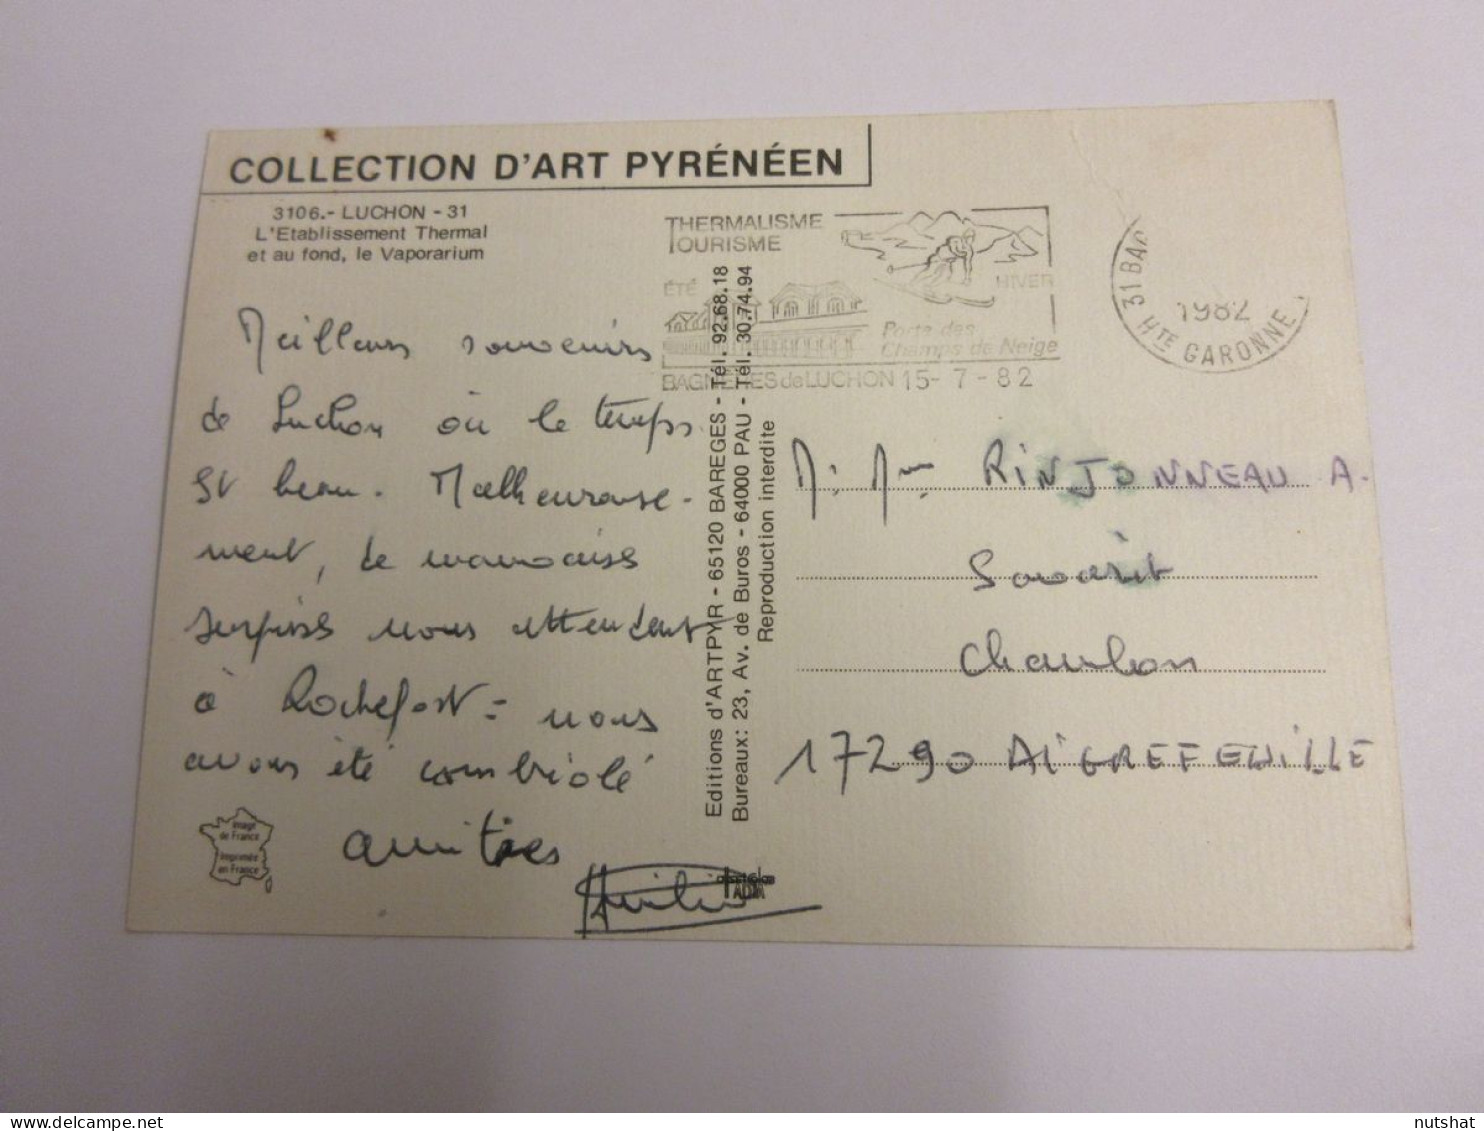 COLLECTION D'ART PYRÉNÉEN
3106.- LUCHON - 31
L'Etablissement Thermal
et au fond, le Vaporarium
THERMALISME
TOURISME
ÉTÉ
HIVER
Porte des
Champs de Neige
BAGNERES de LUCHON 15-7-82
31 BAG
1982
HTE GARONNE
Meilleurs souvenirs
de Luchon où le temps
est beau. Malheureuse-
ment, de mauvaises
surprises nous attendent
à Rochefort = nous
avons été cambriolé
amitiés
Editions d'ARTPYR - 65120 BAREGES - Tél. 92.68.18
Bureaux: 23, Av. de Buros - 64000 PAU - Tél. 30.74.94
Reproduction interdite
M. Mme RINJONNEAU A.
Savarit
Chambon
17290 AIGREFEUILLE
Image
de France
Imprimée
en France
nutshat
www.delcampe.net